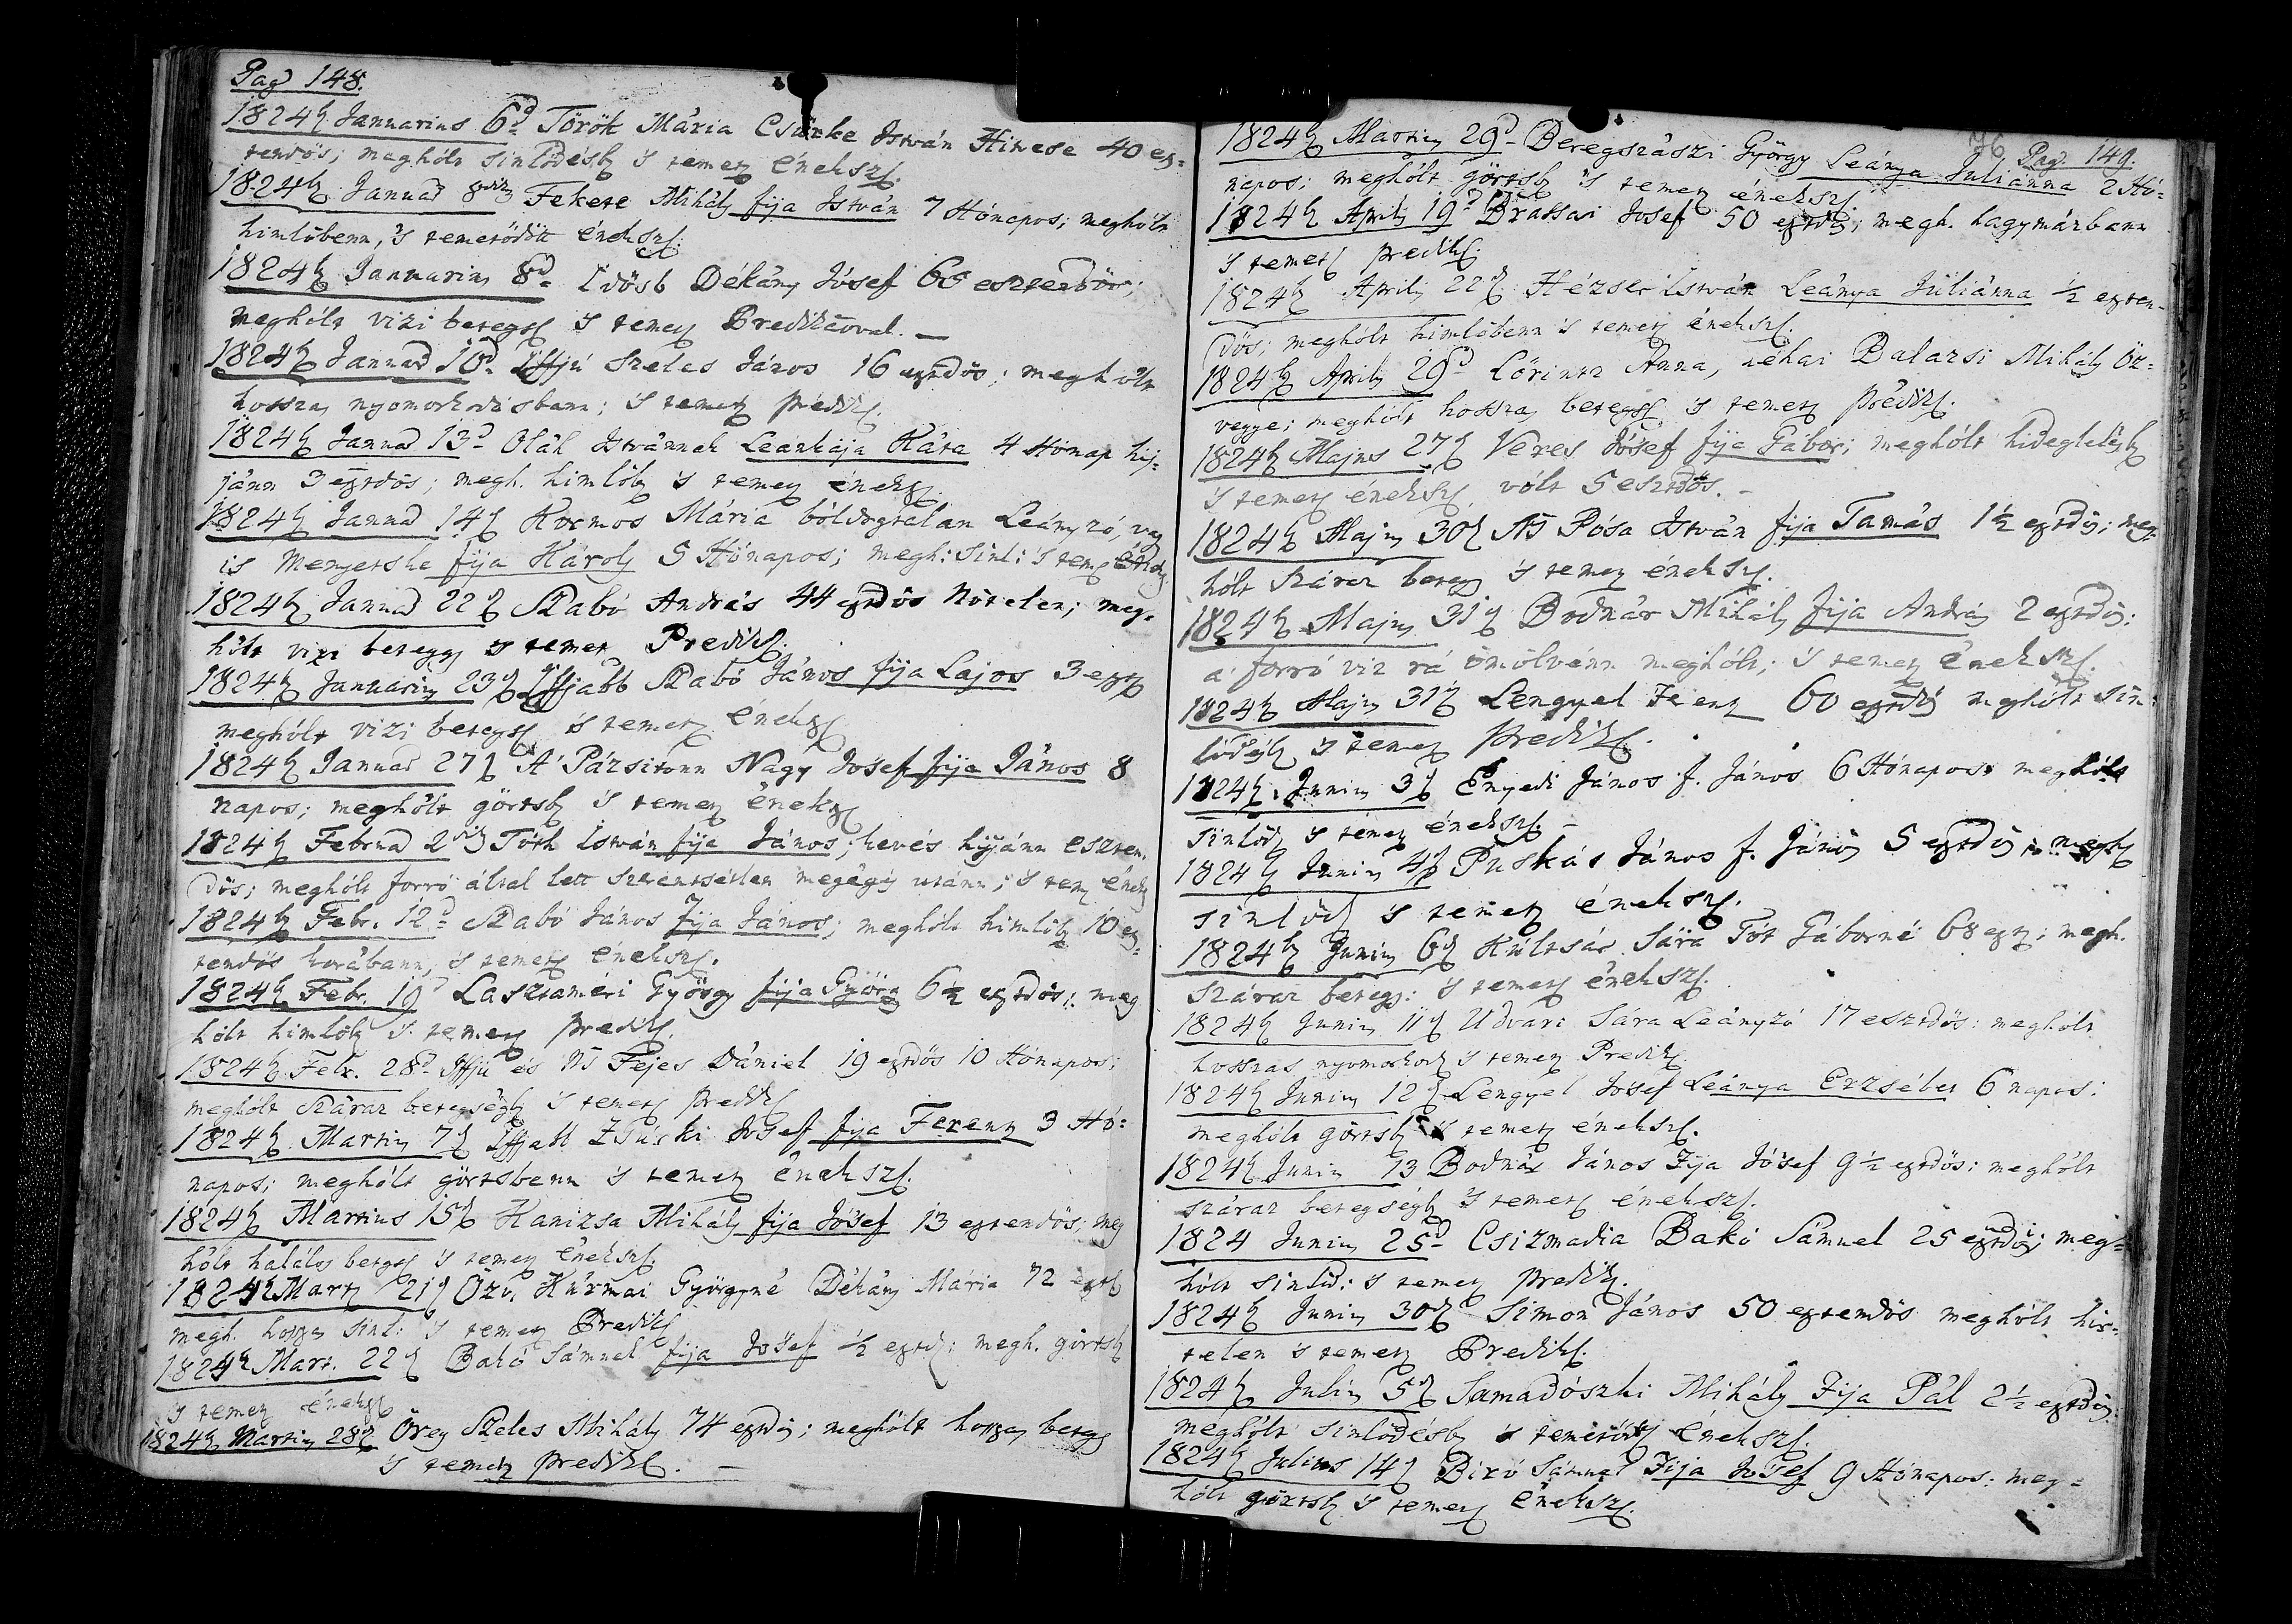 Pag 148.
1824b Januarius 6d Török Mária Csürke István Hitvese 40 esz-
tendős; meghólt sinlődésb 's temet éneksz.
1824b Januar 8dik Fekete Mihály fija István 7 Hónapos; meghólt
himlőbenn, 's temetődött éneksz.
1824b Januarius 8d Idősb Dékány Jósef 60 esztendős;
meghólt vizi betegs 's temet Predikátzóval. —
1824b Januar 10d Iffjú Szeles János 16 esztdős; meghólt
hosszas nyomorkodásbann; 's temet prédik.
1824b Januar 13d Oláh Istvánnak Leánkája Kata 4 Hónap hij-
jánn 3 esztdős; megh. himlőb 's temet éneksz.
1824b Januar 14d Kormos Mária bóldogtalan Leányzó, vagy
is Menyetske fija Károly 5 Hónapos; megh: sinl: 's tem énekl
1824b Januar 22d Szabó András 44 esztdős Nőtelen; meg-
hólt vizi betegs 's temet Predik.
1824b Januarius 23d Iffjabb Szabó János fija Lajos 3 eszt
meghólt vizi betegs 's temet éneksz
1824b Januar 27d A' Pázsitonn Nagy Jósef fija János 8
napos; meghólt görtsb 's temet éneksz
1824b Februar 2dik Tóth István fija János; kevés hijjánn eszten-
dős; meghólt forró által lett szerentsétlen megégés utánn; 's tem énekl
1824b Febr. 12d Szabó János fija János; meghólt himlőb 10 esz-
tendős korábann, 's temet éneksz.
1824b Febr. 19d Lasztaméri György fija György 6½ esztdős; meg
hólt himlőb 's temet predik.
1824b Febr. 28d Iffjú és Ns Fejes Dániel 19 esztdős 10 Hónapos;
meghólt száraz betegségb 's temet predik
1824b Martius 7d Iffjabb Zsúrki Jósef fija Ferentz 3 Hó-
napos; meghólt görtsbenn 's temet éneksz.
1824b Martius 15d Kanizsa Mihály fija Jósef 13 esztendős; meg
hólt halálos betegs 's temet éneksz
1824b Mart 21d Özv. Kármai Györgyné Dékány Mária 72 eszt
megh. hosszas sinl: 's temet Predik
1824b Mart. 22d Bakó Sámuel fija Jósef ½ esztd; megh. görtsb
's temet éneksz
1824b Martius 28d Öreg Szeles Mihály 74 esztdős; meghólt hosszas betegs
's temet predik. —
76 Pag. 149.
1824b Martius 29d Beregszászi György Leánya Juliánna 2 Hó-
napos; meghólt görtsb 's temet éneksz.
1824b Aprilis 19d Brassai Josef 50 esztdős; megh. hagymázbann
's temet predik.
1824b Aprilis 22d Hézser István Leánya Juliánna ½ eszten-
dős; meghólt himlőbenn 's temet éneksz.
1824b Aprilis 29d Lőrintz Anna, néhai Balazsi Mihály Öz-
vegye; meghólt hosszas betegs 's temet prédik.
1824b Majus 27d Veres Jósef fija Gábor; meghólt hideglelésb
's temet éneksz. vólt 5 esztdős. —
1824b Majus 30d Ns Pósa István fija Tamás 1½ esztdős; meg-
hólt száraz betegs 's temet éneksz.
1824b Majus 31d Bodnár Mihály fija András 2 esztdős:
a' forró viz rá omolvánn meghólt; 's temet éneksz.
1824b Majus 31d Lengyel Ferentz 60 esztdős meghólt sin-
lődésb 's temet predik.
1824b Junius 3d Enyedi János f. János 6 Hónapos meghólt
sinlőd 's temet éneksz. —
1824b Junius 4d Puskás János f. János 5 esztdős megh
sinlőd 's temet éneksz.
1824b Junius 6d Kúltsár Sára Tót Gáborné 68 eszt; megh.
száraz betegs: 's temet éneksz.
1824b Junius 11d Udvari Sára Leányzó 17 esztdős: meghólt
hosszas nyomorkod 's temet Predik.
1824b Junius 12d Lengyel Jósef Leánya Erzsébet 6 napos:
meghólt görtsb 's temet éneksz.
1824b Junius 13 Bodnár János Fija Jósef 9½ esztdős: meghólt
száraz betegségb 's temet éneksz.
1824 Junius 25d Csizmadia Bakó Sámuel 25 esztdős; meg-
hólt sinlőd: 's temet predik.
1824b Junius 30d Simon János 50 esztendős meghólt hir-
telen 's temet Predik.
1824b Julius 5d Samadószki Mihály Fija Pál 2½ esztdős:
meghólt sinlődésb 's temetődt éneksz.
1824b Julius 14d Biró Sámuel Fija Jósef 9 Hónapos: meg-
hólt görtsb 's temet éneksz.